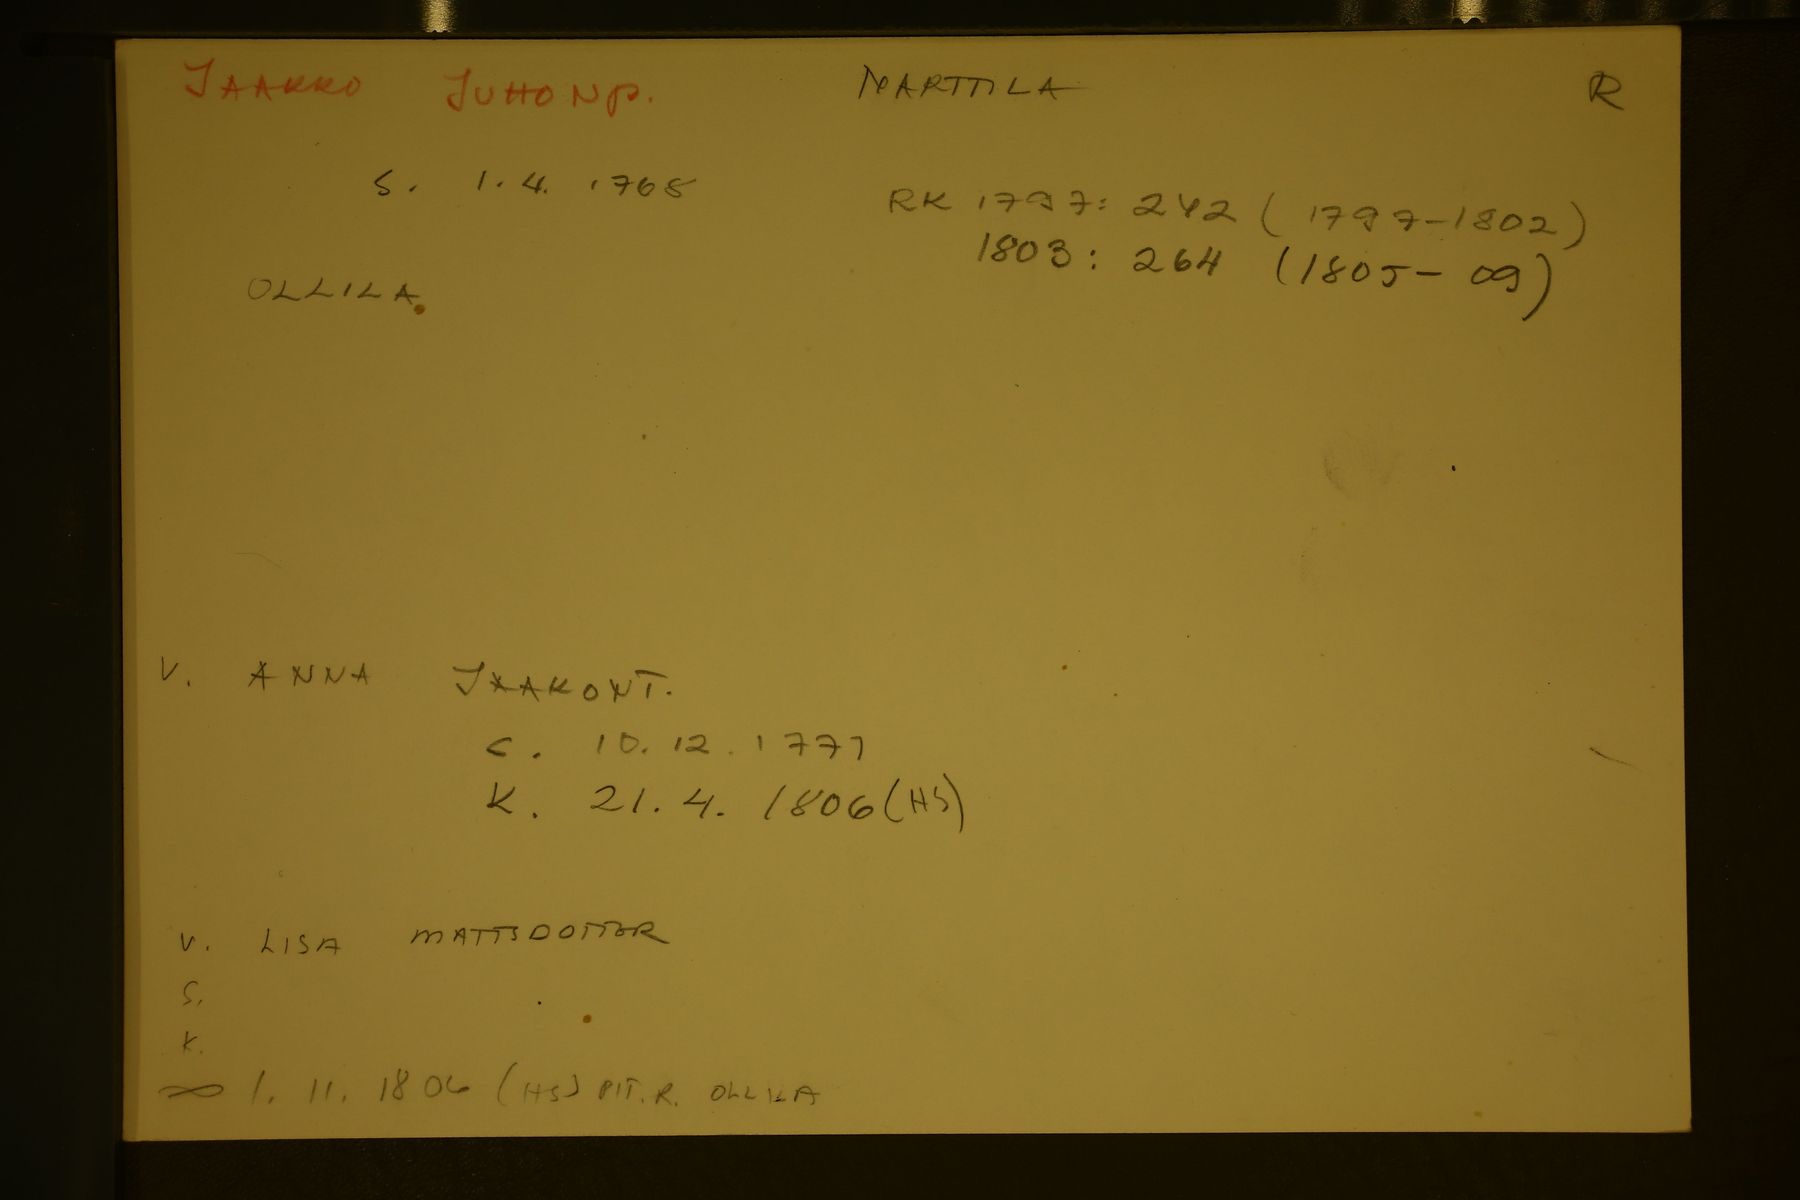 JAAKKO JUHONP. MARTTILA R
S. 1.4. 1768
RK 1797: 242 (1797-1802)
1803: 264 (1805-09)
OLLILA
V. ANNA JAAKONT.
S. 10.12.1771
K. 21.4. 1806 (HS)
V. LISA MATTSDOTTER
S.
K.
∞ 1.11.1806 (HS) PIT.R. OLLILA